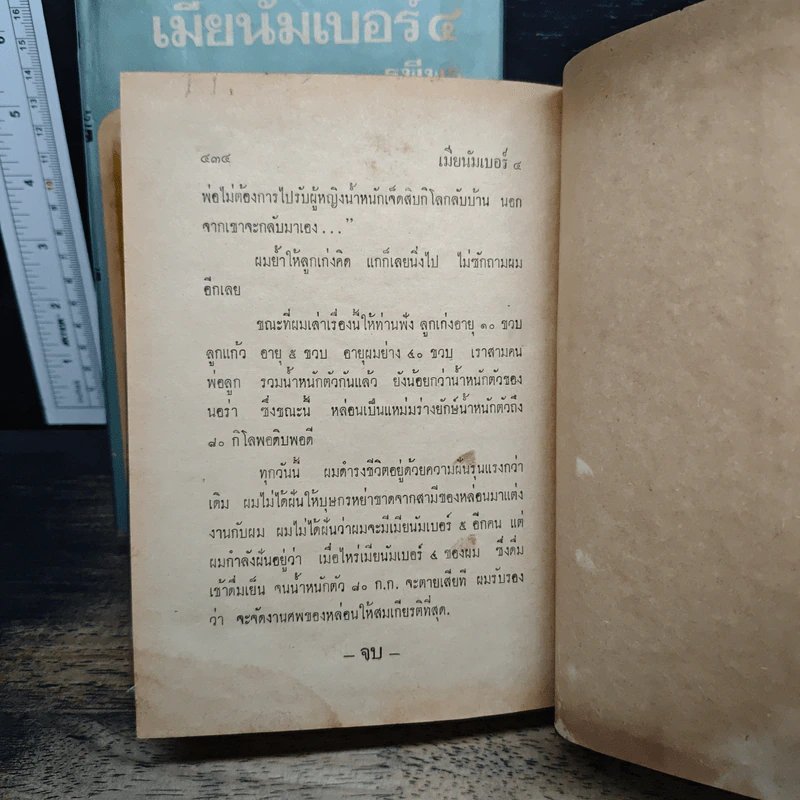 เมียนัมเบอร์ ๔
๔๓๔ เมียนัมเบอร์ ๔
พ่อไม่ต้องการไปรับผู้หญิงน้ำหนักเจ็ดสิบกิโลกลับบ้าน นอก
จากเขาจะกลับมาเอง . . .”
ผมย้ำให้ลูกเก่งคิด แกก็เลยนิ่งไป ไม่ซักถามผม
อีกเลย
ขณะที่ผมเล่าเรื่องนี้ให้ท่านฟัง ลูกเก่งอายุ ๑๐ ขวบ
ลูกแก้ว อายุ ๕ ขวบ อายุผมย่าง ๔๐ ขวบ เราสามคน
พ่อลูก รวมน้ำหนักตัวกันแล้ว ยังน้อยกว่าน้ำหนักตัวของ
นอร่า ซึ่งขณะนี้ หล่อนเป็นแหม่มร่างยักษ์น้ำหนักตัวถึง
๘๐ กิโลพอดิบพอดี
ทุกวันนี้ ผมดำรงชีวิตอยู่ด้วยความฝันรุนแรงกว่า
เดิม ผมไม่ได้ฝันให้บุษกรหย่าขาดจากสามีของหล่อนมาแต่ง
งานกับผม ผมไม่ได้ฝันว่าผมจะมีเมียนัมเบอร์ ๕ อีกคน แต่
ผมกำลังฝันอยู่ว่า เมื่อไหร่เมียนัมเบอร์ ๔ ของผม ซึ่งดื่ม
เช้าดื่มเย็น จนน้ำหนักตัว ๘๐ ก.ก. จะตายเสียที ผมรับรอง
ว่า จะจัดงานศพของหล่อนให้สมเกียรติที่สุด.
– จบ –